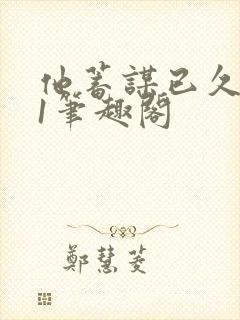 他蓄謀已久
1筆趣閣
鄭慧菱